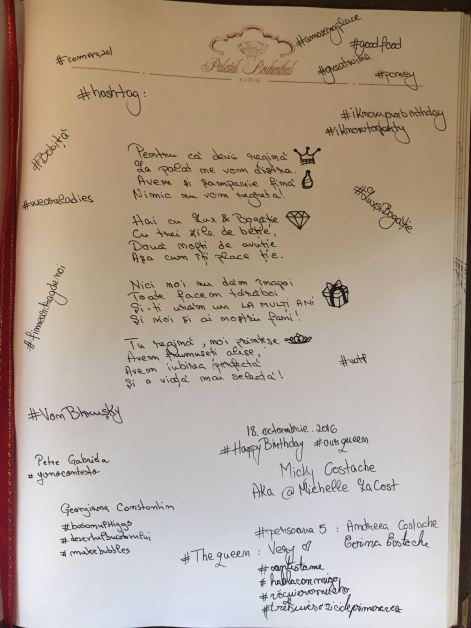 #amazingplace
#goodfood
#greatwine
#poney
Palatul Brukenthal
AVRIG
#hashtag:
#iknowyourbirthday
#Bobiță
#weareladies
Pentru că devii regină
La palat ne vom distra.
Avem și șampanie fină
Nimic nu vom regreta!
#Lux&Bogăție
Hai cu Lux & Bogăție
Cu trei zile de beție,
Două nopți de avuție
Așa cum îți place ție.
Nici noi nu dăm înapoi
Toate facem tărăboi
Și-ți urăm un LA MULȚI ANI
Și noi și ai noștri fani!
Tu regină, noi prințese
Avem frumuseți alese,
Avem iubirea perfectă
Și o viață mai selectă!
#wtf
#VomBrunșky
18.octombrie.2016
#HappyBirthday #ourqueen
Micky Costache
AKA @Michelle LaCost
Petre Gabriela
#yonocontesto
Georgiana Constantin
#makebubbles
#persoana 5 : Andreea Costache
Corina Costache
#The queen : Very
#hablaconmigo